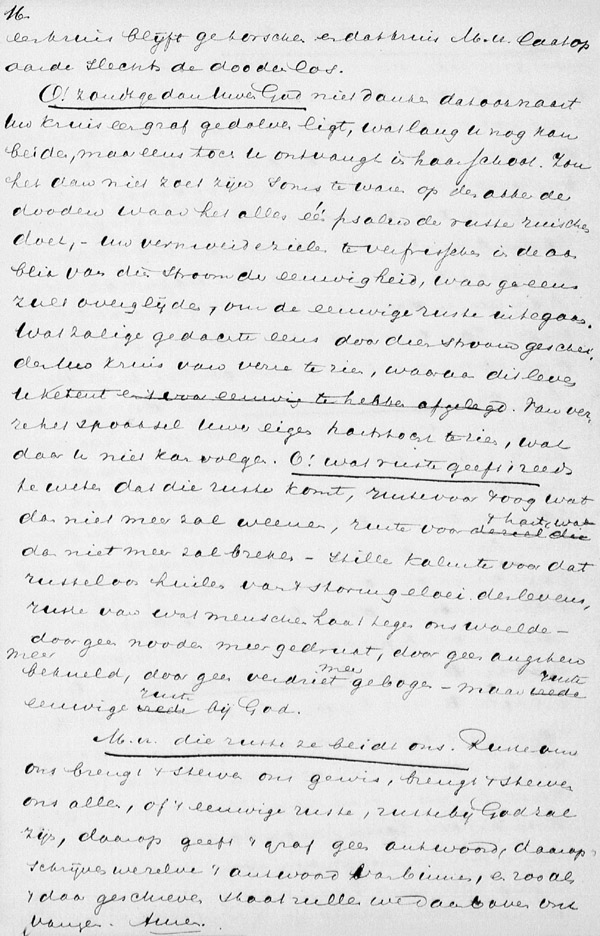 16
een kruis blijft gehorschen en dat kruis M.U. laat op
aarde slechts de dooden los.
O! zoudt ge dan Uwen God niet danken dat daarnaast
Uw kruis een graf gedolven ligt, wat lang u nog zou
beiden, maar eens toch U ontvangt in haar schoot. Zou
het dan niet zoet zijn soms te waren op den akker der
dooden waar het alles één psalm der ruste ruischen
doet, – uw vermoeide zielen te verfrisschen in de aan
blik van dien stroom der eeuwigheid, waar ge eens
zult overglijden, om de eeuwige ruste in te gaan.
Wat zalige gedachte eens door dien stroom geschei-
den Uw kruis van verre te zien, waaraan dit leven
U ketent en 't voor eeuwig te hebben afgelegd. Van ver-
re het spooksel Uwer eigen hartstocht te zien, wat
daar U niet kan volgen. O! wat ruste geeft 't reeds
te weten dat die ruste komt, ruste voor 't oog wat
dan niet meer zal weenen, ruste voor de ziel die
't hart, wat
dan niet meer zal breken – stille kalmte voor dat
rusteloos huilen van 't stormgeloei des levens,
ruste van wat menschen haat tegen ons woelde –
door geen nooden meer gedrukt, door geen angsten
meer
bekneld, door geen verdriet meer gebogen – maar vrede
ruste
eeuwige vrede bij God.
ruste
M.U. die ruste ze beidt ons. Ruste aan
ons brengt 't sterven ons gewis, brengt 't sterven
ons allen, of 't eeuwige ruste, ruste bij God zal
zijn, daarop geeft 't graf geen antwoord, daarop
schrijven we zelve 't antwoord van binnen, en zooals
't daar geschreven staat zullen we 't daarboven ont-
vangen. Amen.